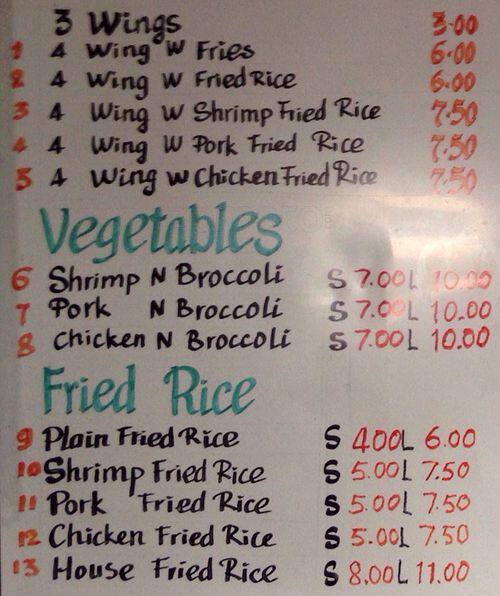 3 Wings 3.00
1 4 Wing W Fries 6.00
2 4 Wing W Fried Rice 6.00
3 4 Wing W Shrimp Fried Rice 7.50
4 4 Wing W Pork Fried Rice 7.50
5 4 Wing W Chicken Fried Rice 7.50
Vegetables
6 Shrimp N Broccoli S 7.00 L 10.00
7 Pork N Broccoli S 7.00 L 10.00
8 Chicken N Broccoli S 7.00 L 10.00
Fried Rice
9 Plain Fried Rice S 400 L 6.00
10 Shrimp Fried Rice S 5.00 L 7.50
11 Pork Fried Rice S 5.00 L 7.50
12 Chicken Fried Rice S 5.00 L 7.50
13 House Fried Rice S 8.00 L 11.00